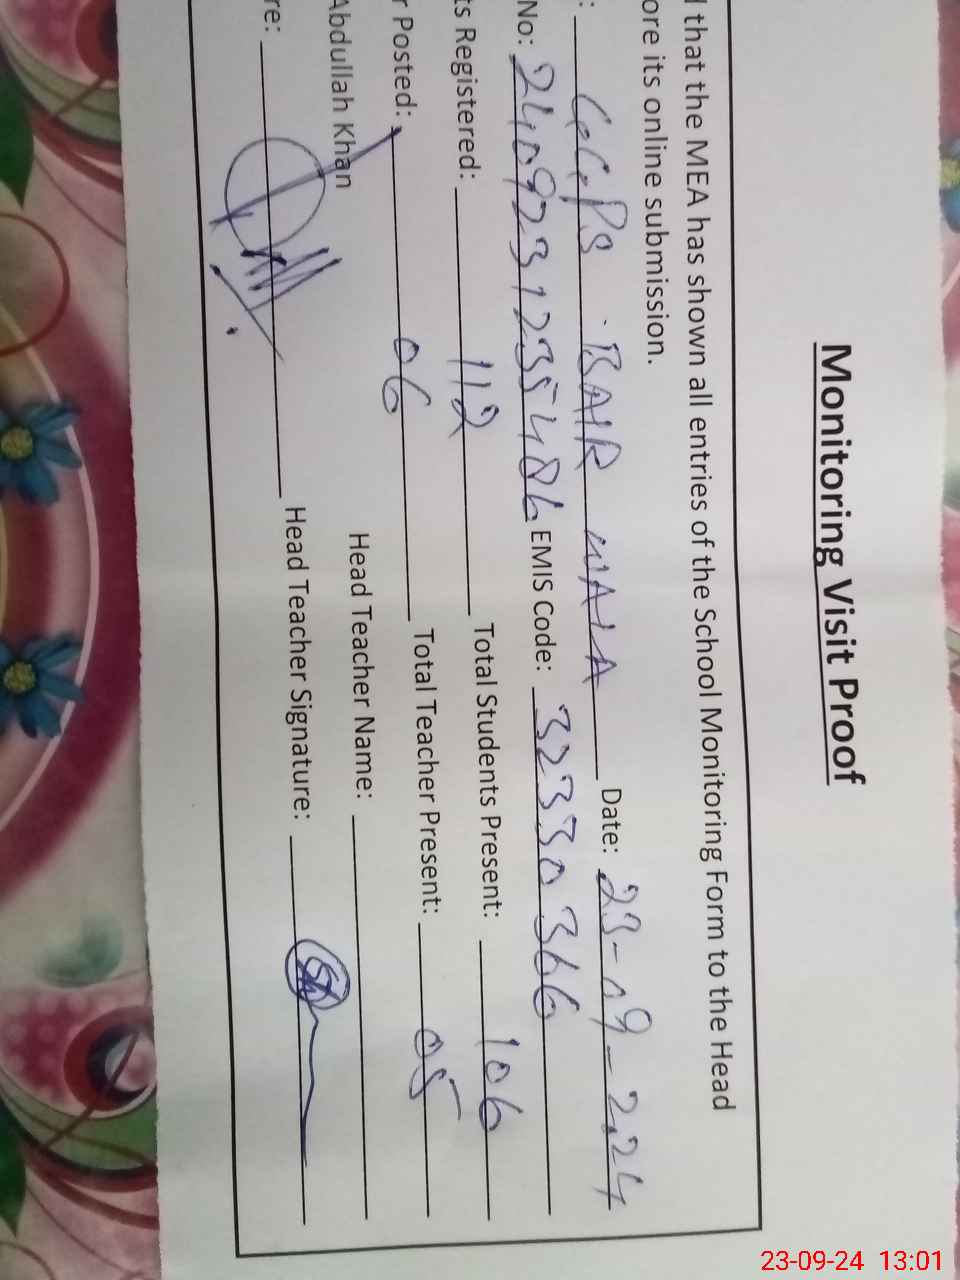 Monitoring Visit Proof
that the MEA has shown all entries of the School Monitoring Form to the Head
ore its online submission.
: GGPS BAIR WALA Date: 23-09-2024
No: 240923123548 EMIS Code: 32330366
ts Registered: 112 Total Students Present: 106
r Posted: 06 Total Teacher Present: 05
Abdullah Khan Head Teacher Name:
re: Head Teacher Signature:
23-09-24 13:01